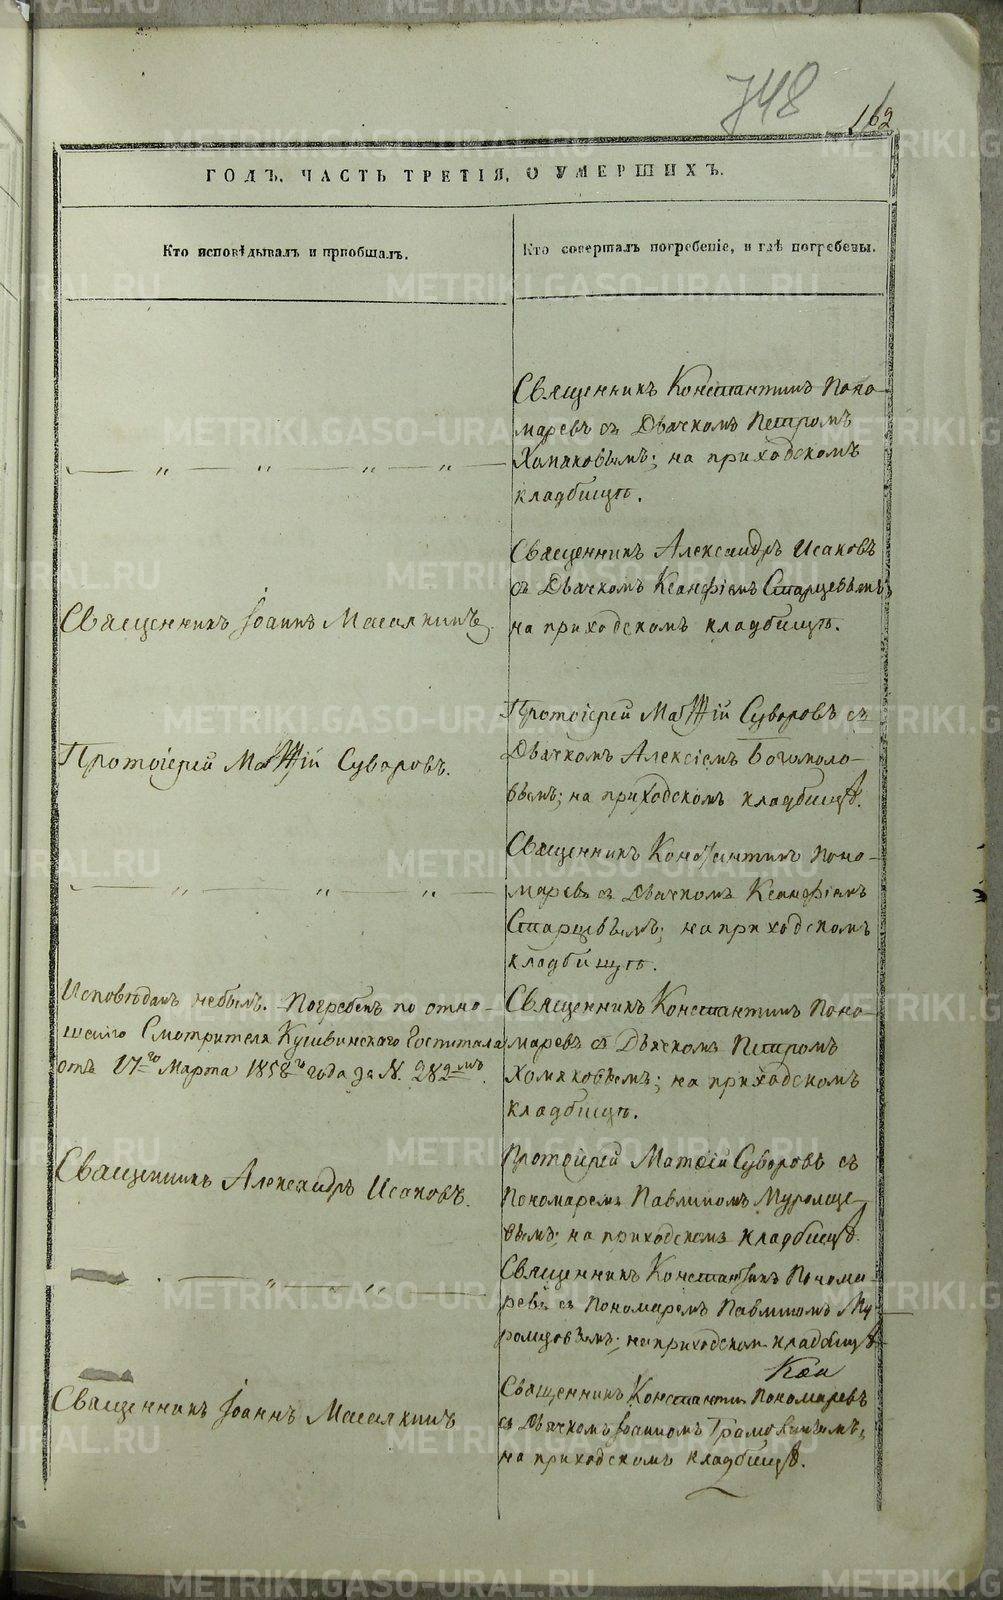 748
162
ГОДЪ. ЧАСТЬ ТРЕТІЯ, О УМЕРШИХЪ.
Кто исповѣдывалъ и приобщалъ.
Кто совершалъ погребеніе, и гдѣ погребены.
Священникъ Константинъ Поно-
маревъ съ Дьячкомъ Петромъ
Хомяковымъ; на приходскомъ
кладбищѣ.
— „ — „ — „ — „ —
Священникъ Іоаннъ Масалкинъ.
Священникъ Александръ Исаковъ
съ Дьячкомъ Ксанфіемъ Старцевымъ;
на приходскомъ кладбищѣ.
Протоіерей Матѳій Суворовъ.
Протоіерей Матѳій Суворовъ съ
Дьячкомъ Алексіемъ Богомоло-
вымъ; на приходскомъ кладбищѣ.
— „ — „ — „ —
Священникъ Константинъ Поно-
маревъ съ Дьячкомъ Ксанфіемъ
Старцевымъ; на приходскомъ
кладбищѣ.
Исповѣданъ небылъ. Погребенъ по отно-
шенію Смотрителя Кушвинскаго Госпиталя
отъ 17го Марта 1858го года за N. 282мъ.
Священникъ Константинъ Поно-
маревъ съ Дьячкомъ Петромъ
Хомяковымъ; на приходскомъ
кладбищѣ.
Священникъ Александръ Исаковъ.
Протоіерей Матѳій Суворовъ съ
Пономаремъ Павлиномъ
на приходскомъ кладбищѣ.
— „ — „ —
Священникъ Константинъ Понома-
ревъ съ Пономаремъ Павлиномъ Му-
на приходскомъ кладбищѣ
Священникъ Іоаннъ Масалкинъ
Священникъ Константинъ Пономаревъ
съ Дьячкомъ Іоанномъ
на приходскомъ кладбищѣ.
METRIKI.GASO-URAL.RU